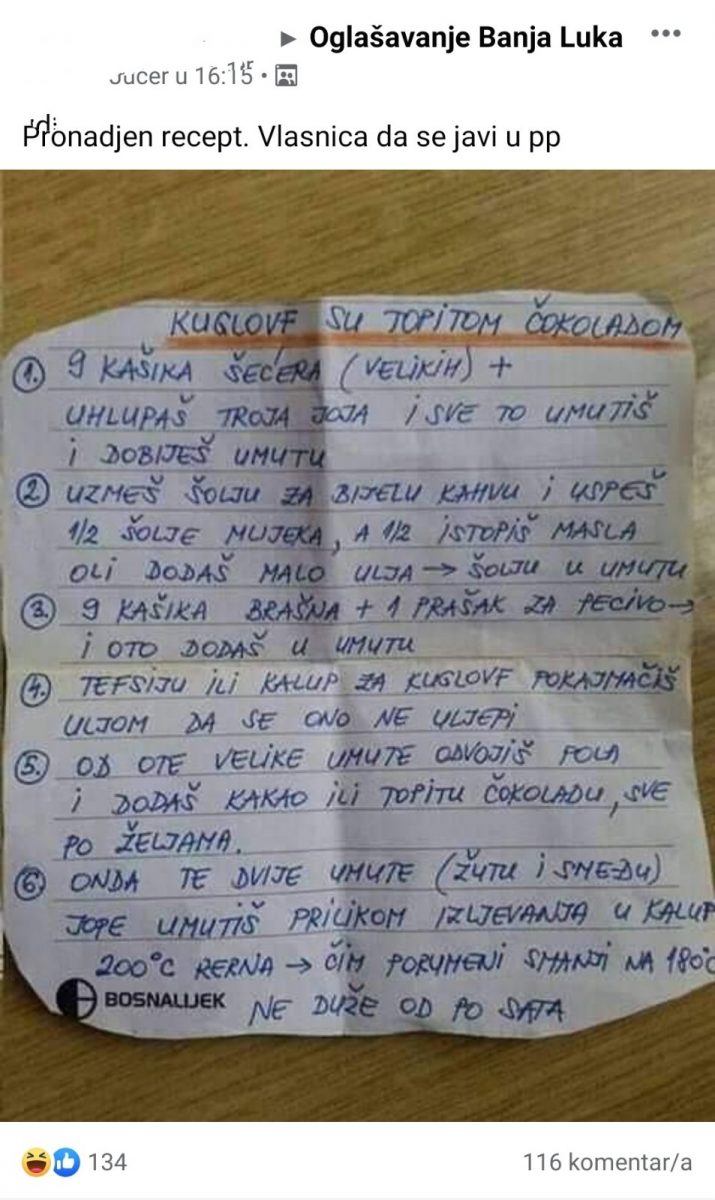 ▶ Oglašavanje Banja Luka •••
Jučer u 16:15 •
Pronadjen recept. Vlasnica da se javi u pp
KUGLOVF SU TOPITOM ČOKOLADOM
1. 9 KAŠIKA ŠEĆERA (VELIKIH) +
UHLUPAŠ TROJA JOJA I SVE TO UMUTIŠ
I DOBIJEŠ UMUTU
2. UZMEŠ ŠOLJU ZA BIJELU KAHVU I USPEŠ
1/2 ŠOLJE MUJEKA, A 1/2 ISTOPIŠ MASLA
OLI DODAŠ MALO ULJA → ŠOLJU U UMUTU
3. 9 KAŠIKA BRAŠNA + 1 PRAŠAK ZA PECIVO →
I OTO DODAŠ U UMUTU
4. TEFSIJU ILI KALUP ZA KUGLOVF POKAJMAČIŠ
ULJOM DA SE ONO NE ULJEPI
5. OD OTE VELIKE UMUTE ODVOJIŠ POLA
I DODAŠ KAKAO ILI TOPITU ČOKOLADU, SVE
PO ŽELJAMA.
6. ONDA TE DVIJE UMUTE (ŽUTU I SMEĐU)
JOPE UMUTIŠ PRILIKOM IZLJEVANJA U KALUP
200°C RERNA → ČIM PORUMENI SMANJI NA 180°C
BOSNALIJEK NE DUŽE OD PO SATA
134
116 komentar/a